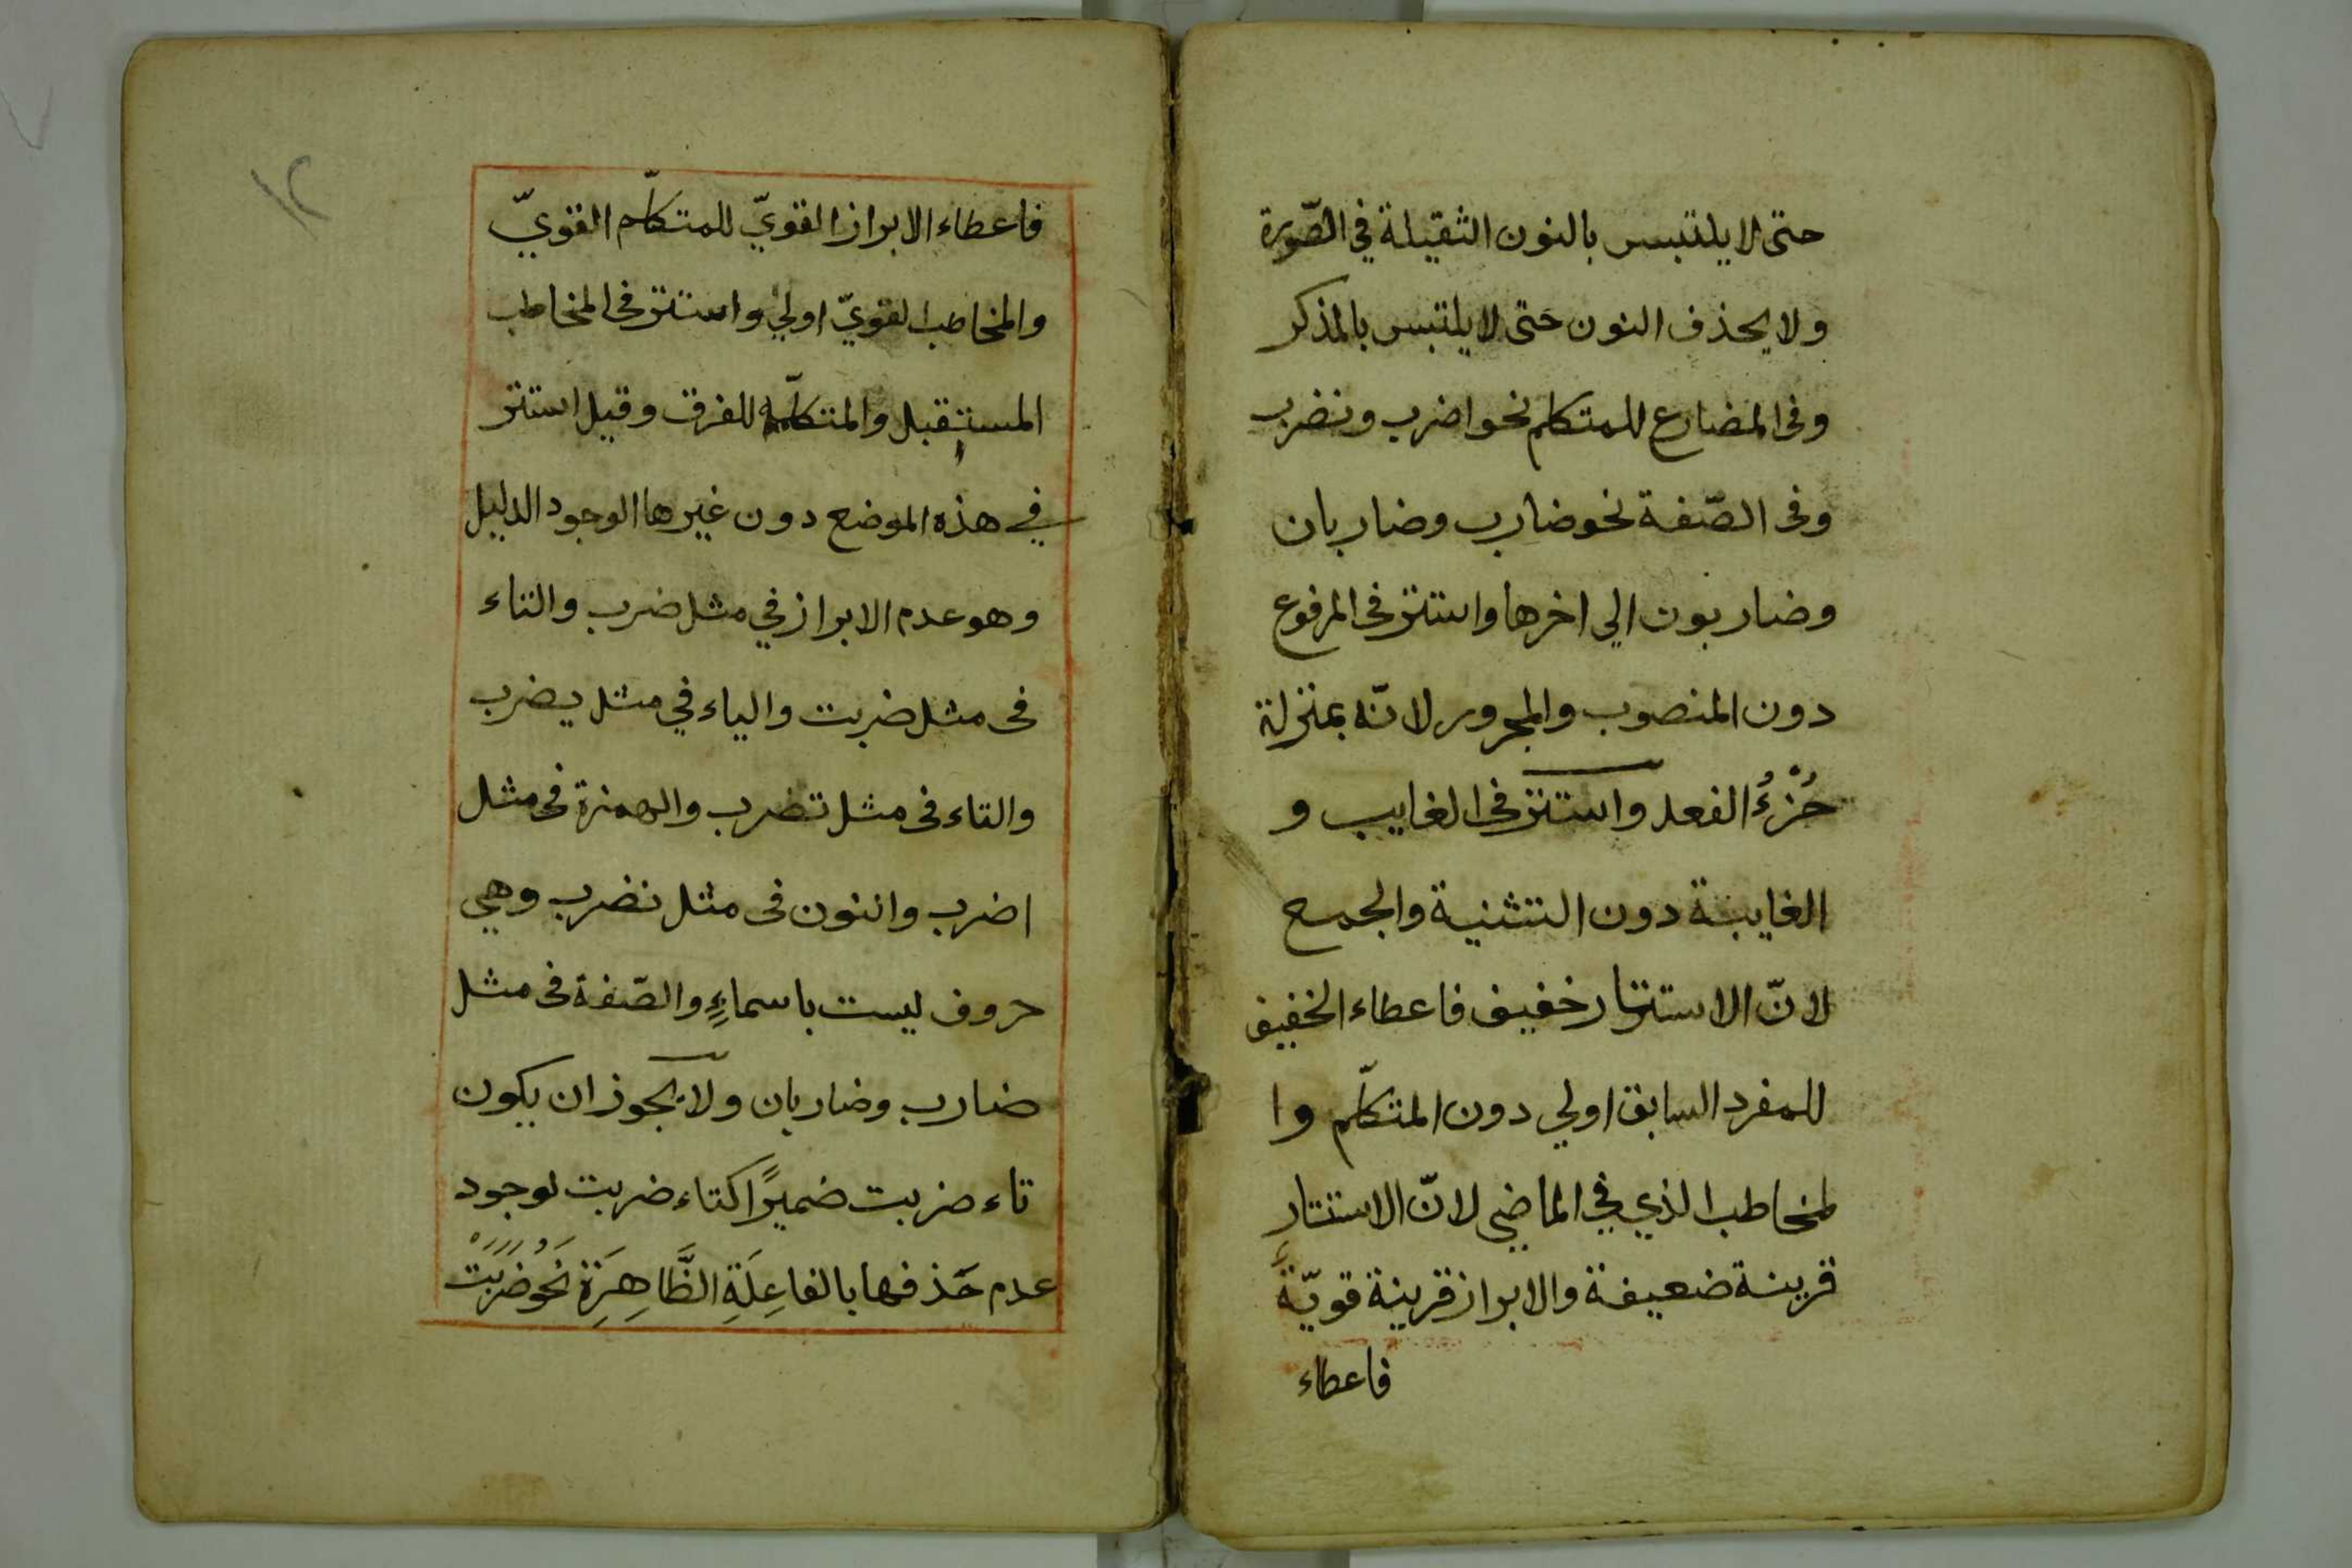 حتى لا يلتبس بالنون الثقيلة في الصّورة
ولا يحذف النون حَتى لا يلتبس بالمذكر
وفى المضارع للمتكلم نحو اضرب ونضرب
وفى الصّفة نحو ضارب وضاربان
وضاربون الي اخرها واستتر فى المرفوع
دون المنصوب والمجرور لانّه بمنزلة
جُزْءُ الفعل واستتر فى الغايب و
الغايبة دون التثنية والجمع
لانّ الاستتار خفيف فاعطاء الخفيف
للمفرد السابق اولي دون المتكلّم وا
لمخاطب الذي في الماضي لانّ الاستتار
قرينة ضعيفة والابراز قرينة قويّةٌ
فاعطاء
١٢
فاعطاء الابراز القويّ للمتكلّم القويّ
والمخاطب القويّ اولي واستتر فى المخاطب
المستقبل والمتكلّم للفرق وقيل استتر
في هذه الموضع دون غيرها الوجود الدليل
وهو عدم الابراز في مثل ضرب والتاء
فى مثل ضربت والياء في مثل يضرب
والتاء فى مثل تضرب والهمزة فى مثل
اضرب والنون فى مثل نضرب وهي
حروف ليست باسماءٍ والصّفة فى مثل
ضارب وضاربان ولا يجوز ان يكون
تاء ضربت ضميرًا كتاء ضربت لوجود
عدم حَذفها بالفاعِلَةِ الظَّاهِرَةِ نَحْوُ ضَرَبَتْ